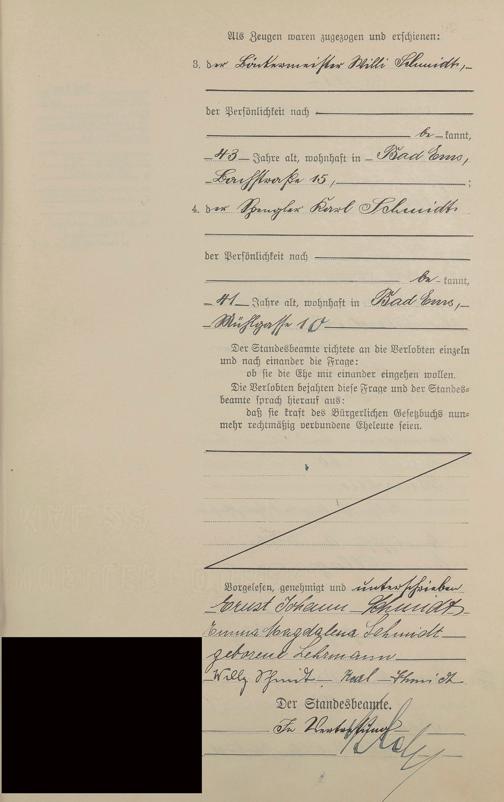 Als Zeugen waren zugezogen und erschienen:
3. der Bäckermeister Willi Schmidt,
der Persönlichkeit nach
be kannt,
43 Jahre alt, wohnhaft in Bad Ems,
Bachstraße 15, ;
4. der Spengler Karl Schmidt
der Persönlichkeit nach
be kannt,
41 Jahre alt, wohnhaft in Bad Ems,
Mühlgasse 10
Der Standesbeamte richtete an die Verlobten einzeln
und nach einander die Frage:
ob sie die Ehe mit einander eingehen wollen.
Die Verlobten bejahten diese Frage und der Standes-
beamte sprach hierauf aus:
daß sie kraft des Bürgerlichen Gesetzbuchs nun-
mehr rechtmäßig verbundene Eheleute seien.
Vorgelesen, genehmigt und unterschrieben
Ernst Johann Schmidt
Emma Magdalena Schmidt
geborene Lehrmann
Willy Schmidt Karl Schmidt
Der Standesbeamte.
In Vertretung